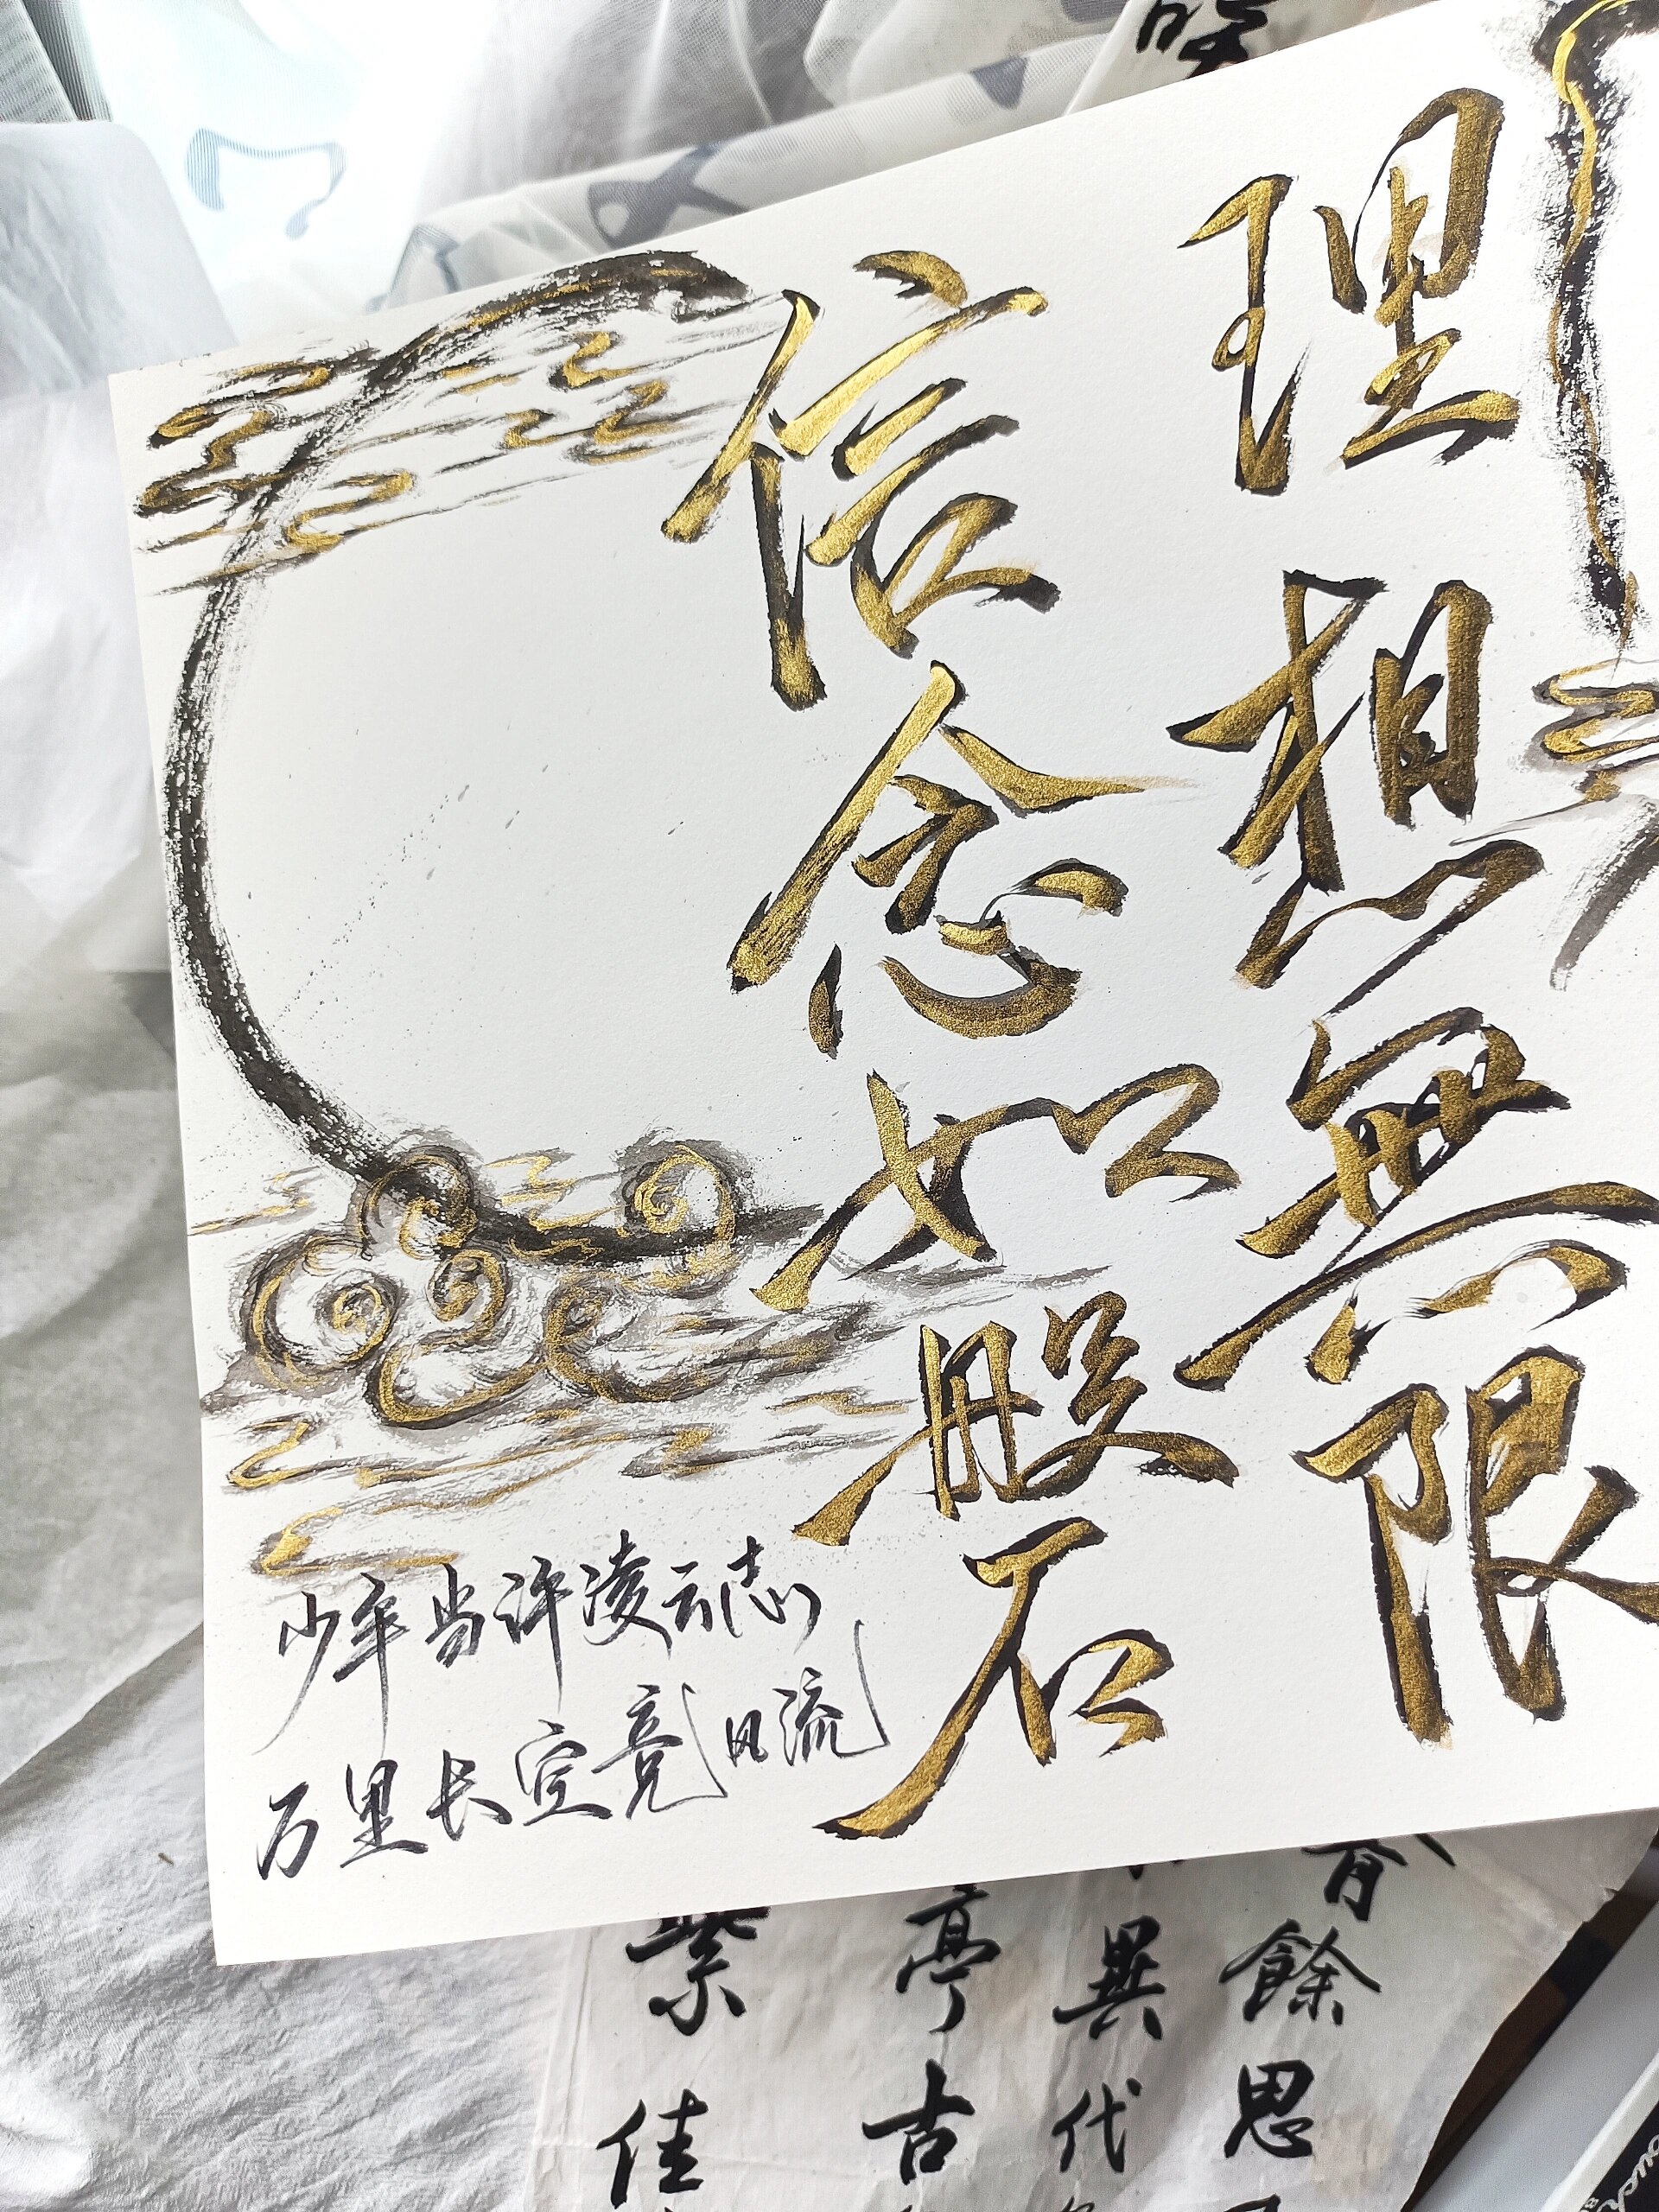 理想無限
信念如般石
少年当许凌云志
万里长空竞风流
餘思
異代
亭古
紫佳